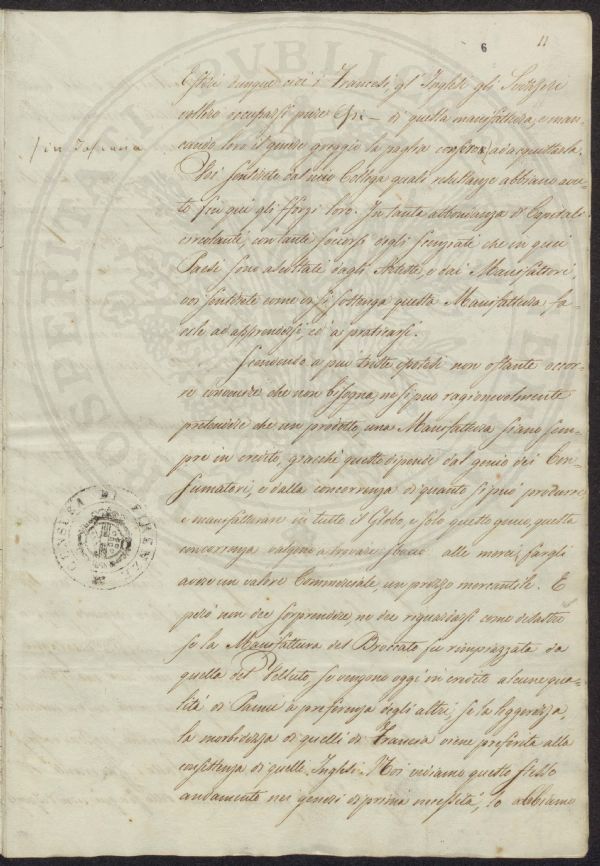 6
11
Estere dunque cioè i Francesi, gl' Inglesi gli Svizzeri
vollero occuparsi pure Essi - di questa manifattura, e man-
cando loro il genere greggio la paglia corsero / ad acquistarla.
/ in Toscana
Voi sentirete dal mio Collega quali resultanze abbiano avu-
to fin qui gli sforzi loro. In tanta abbondanza di Capitali
circolanti, con tanti soccorsi degli scienziati che in quei
Paesi sono ascoltati dagli Artisti, e dai Manifattori,
voi sentirete come si sostenga questa Manifattura fa-
cile ad apprendersi, ed a praticarsi.
Scendendo a più triste ipotesi non ostante occor-
re convenire che non bisogna, ne si può ragionevolmente
pretendere che un prodotto, una Manifattura siano sem-
pre in credito, giacchè questo dipende dal genio dei Con-
sumatori, e dalla concorrenza di quanto si può produrre,
e manifatturare in tutto il Globo, e solo questo genio, questa
concorrenza valgono a trovare sfocio alle merci, a fargli
avere un valore Commerciale, un prezzo mercantile. E
però non dee sorprendere, ne dee riguardarsi come disastro
se la Manifattura del Broccato fu rimpiazzata da
quella del Velluto, se vengono oggi in credito alcune qua-
lità di Panni a preferenza degli altri, se la leggerezza,
la morbidezza di quelli di Francia viene preferita alla
consistenza di quelli Inglesi. Noi vediamo questo stesso
andamento nei generi di prima necessità, lo abbiamo
CENSURA DI FIRENZE
PROSPERITATI PUBLICAE